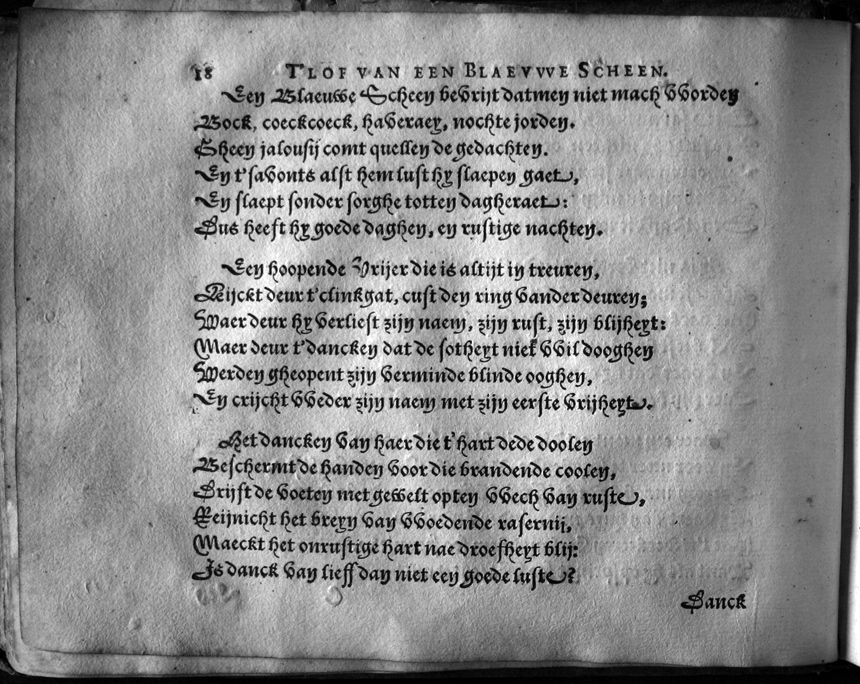 18 T'LOF VAN EEN BLAEVVVE SCHEEN.
Een Blaeuwe Scheen bevrijt datmen niet mach VVorden
Bock, coeckcoeck, haveraey, nochte jorden.
Gheen jalousij comt quellen de gedachten.
En t'savonts alst hem lust hy slaepen gaet,
En slaept sonder sorghe totten dagheraet:
Dus heeft hy goede daghen, en rustige nachten.
Een hoopende Vrijer die is altijt in treuren,
Kijckt deur t'clinkgat, cust den ring vander deuren;
Waer deur hy verliest zijn naem, zijn rust, zijn blijheyt:
Maer deur t'dancken dat de sotheyt niet VVil dooghen
Werden gheopent zijn verminde blinde ooghen,
En crijcht VVeder zijn naem met zijn eerste vrijheyt.
Het dancken van haer die t'hart dede doolen
Beschermt de handen voor die brandende coolen,
Drijft de voeten met gewelt opten VVech van ruste,
Reijnicht het breyn van VVoedende rasernij,
Maeckt het onrustige hart nae droefheyt blij:
Is danck van lieff dan niet een goede luste?
Danck